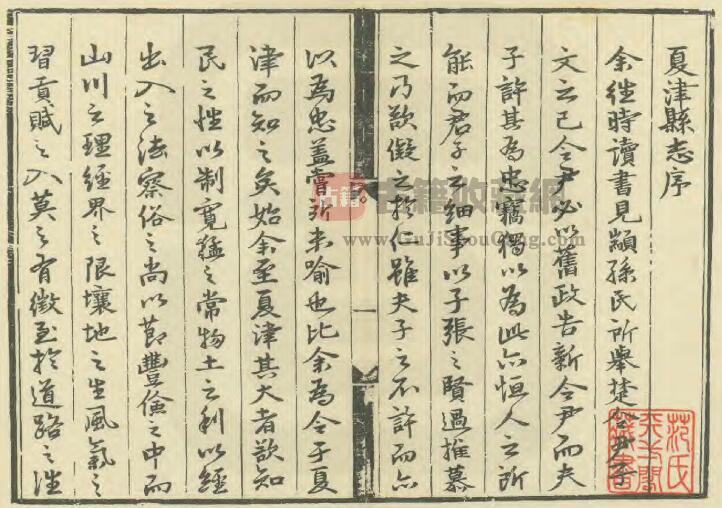 夏津縣志序
余往時讀書見顓孫氏所舉楚令尹子
文之已令尹必以舊政告新令尹而夫
子許其為忠竊獨以為此亦恒人之所
能而君子之細事以子張之賢過推慕
之乃欲儗之於仁雖夫子之不許而亦
以為忠蓋嘗所未喻也比余為令于夏
津而知之矣始余至夏津其大者欲知
民之性以制寬猛之常物土之利以經
出入之法察俗之尚以節豐儉之中而
山川之理經界之限壤地之生風氣之
習貢賦之入莫之有徵至於道路之往
一
范氏
天一閣
藏書
古籍
古籍收藏網
www.GuJiShouCang.com